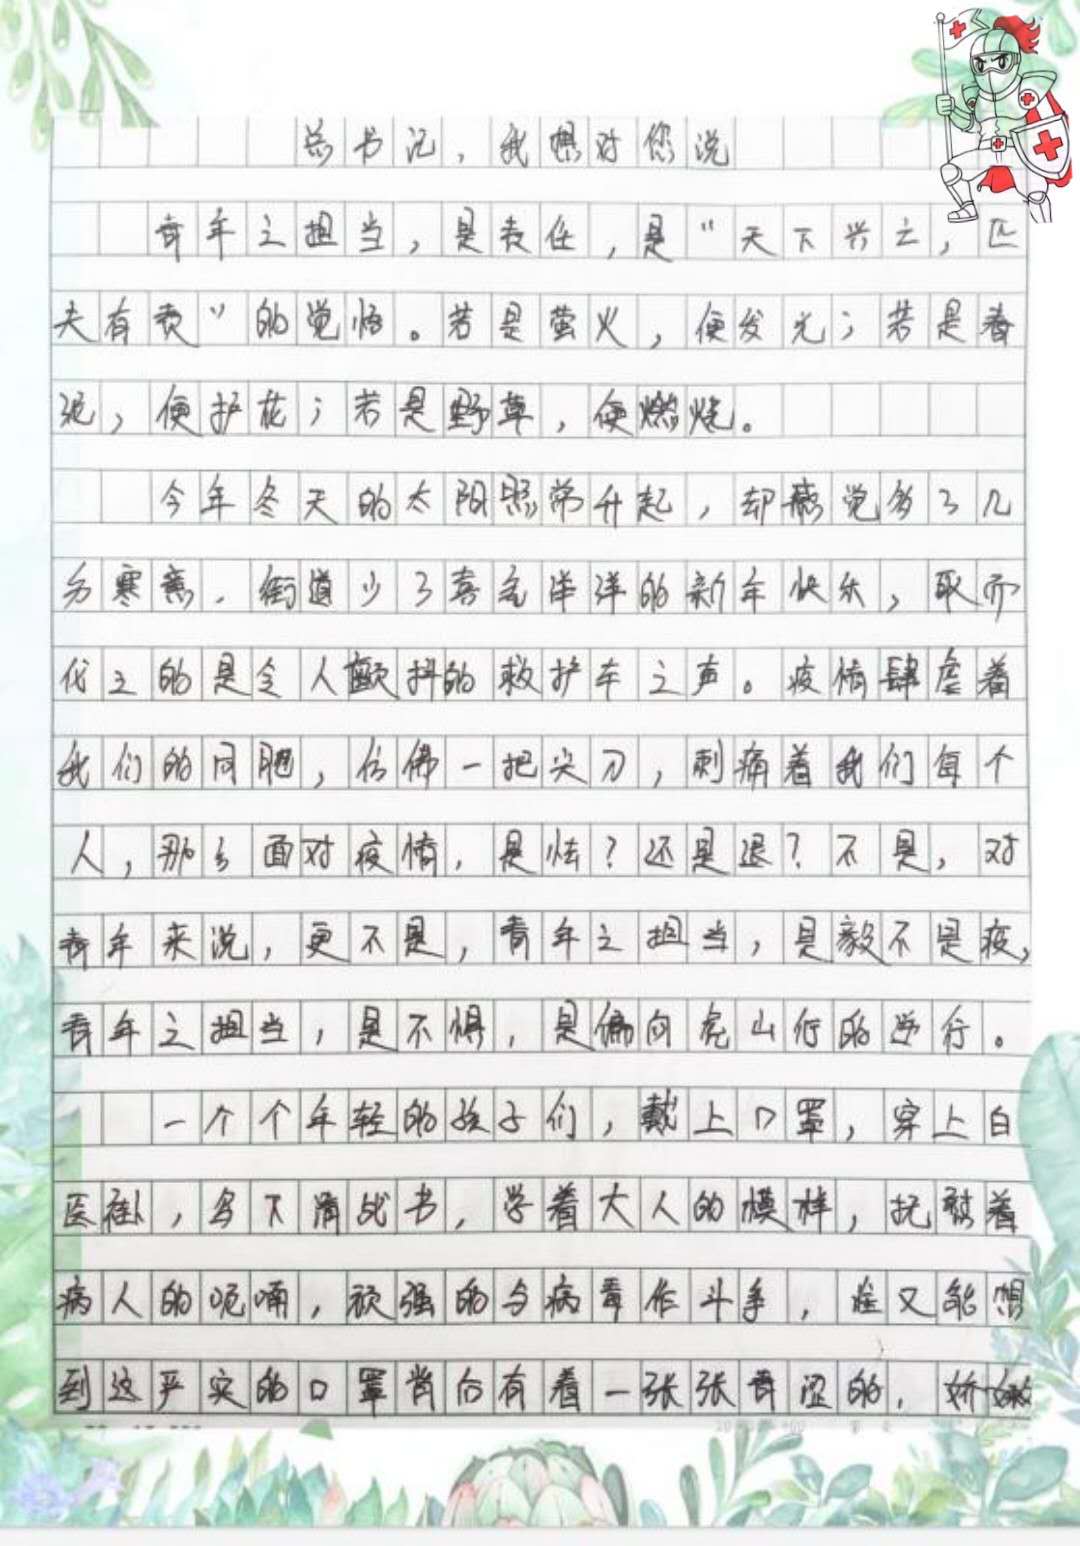 总书记，我想对您说
青年之担当，是责任，是“天下兴亡，匹
夫有责”的觉悟。若是萤火，便发光；若是春
泥，便护花；若是野草，便燃烧。
今年冬天的太阳照常升起，却感觉多了几
分寒意，街道少了喜气洋洋的新年快乐，取而
代之的是令人颤抖的救护车之声。疫情肆虐着
我们的同胞，仿佛一把尖刀，刺痛着我们每个
人，那么面对疫情，是怯？还是退？不是，对
青年来说，更不是，青年之担当，是毅不是疫，
青年之担当，是不惧，是偏向虎山行的逆行。
一个个年轻的孩子们，戴上口罩，穿上白
医褂，写下请战书，学着大人的模样，抚慰着
病人的呢喃，顽强的与病毒作斗争，谁又能想
到这严实的口罩背后有着一张张青涩的，娇嫩